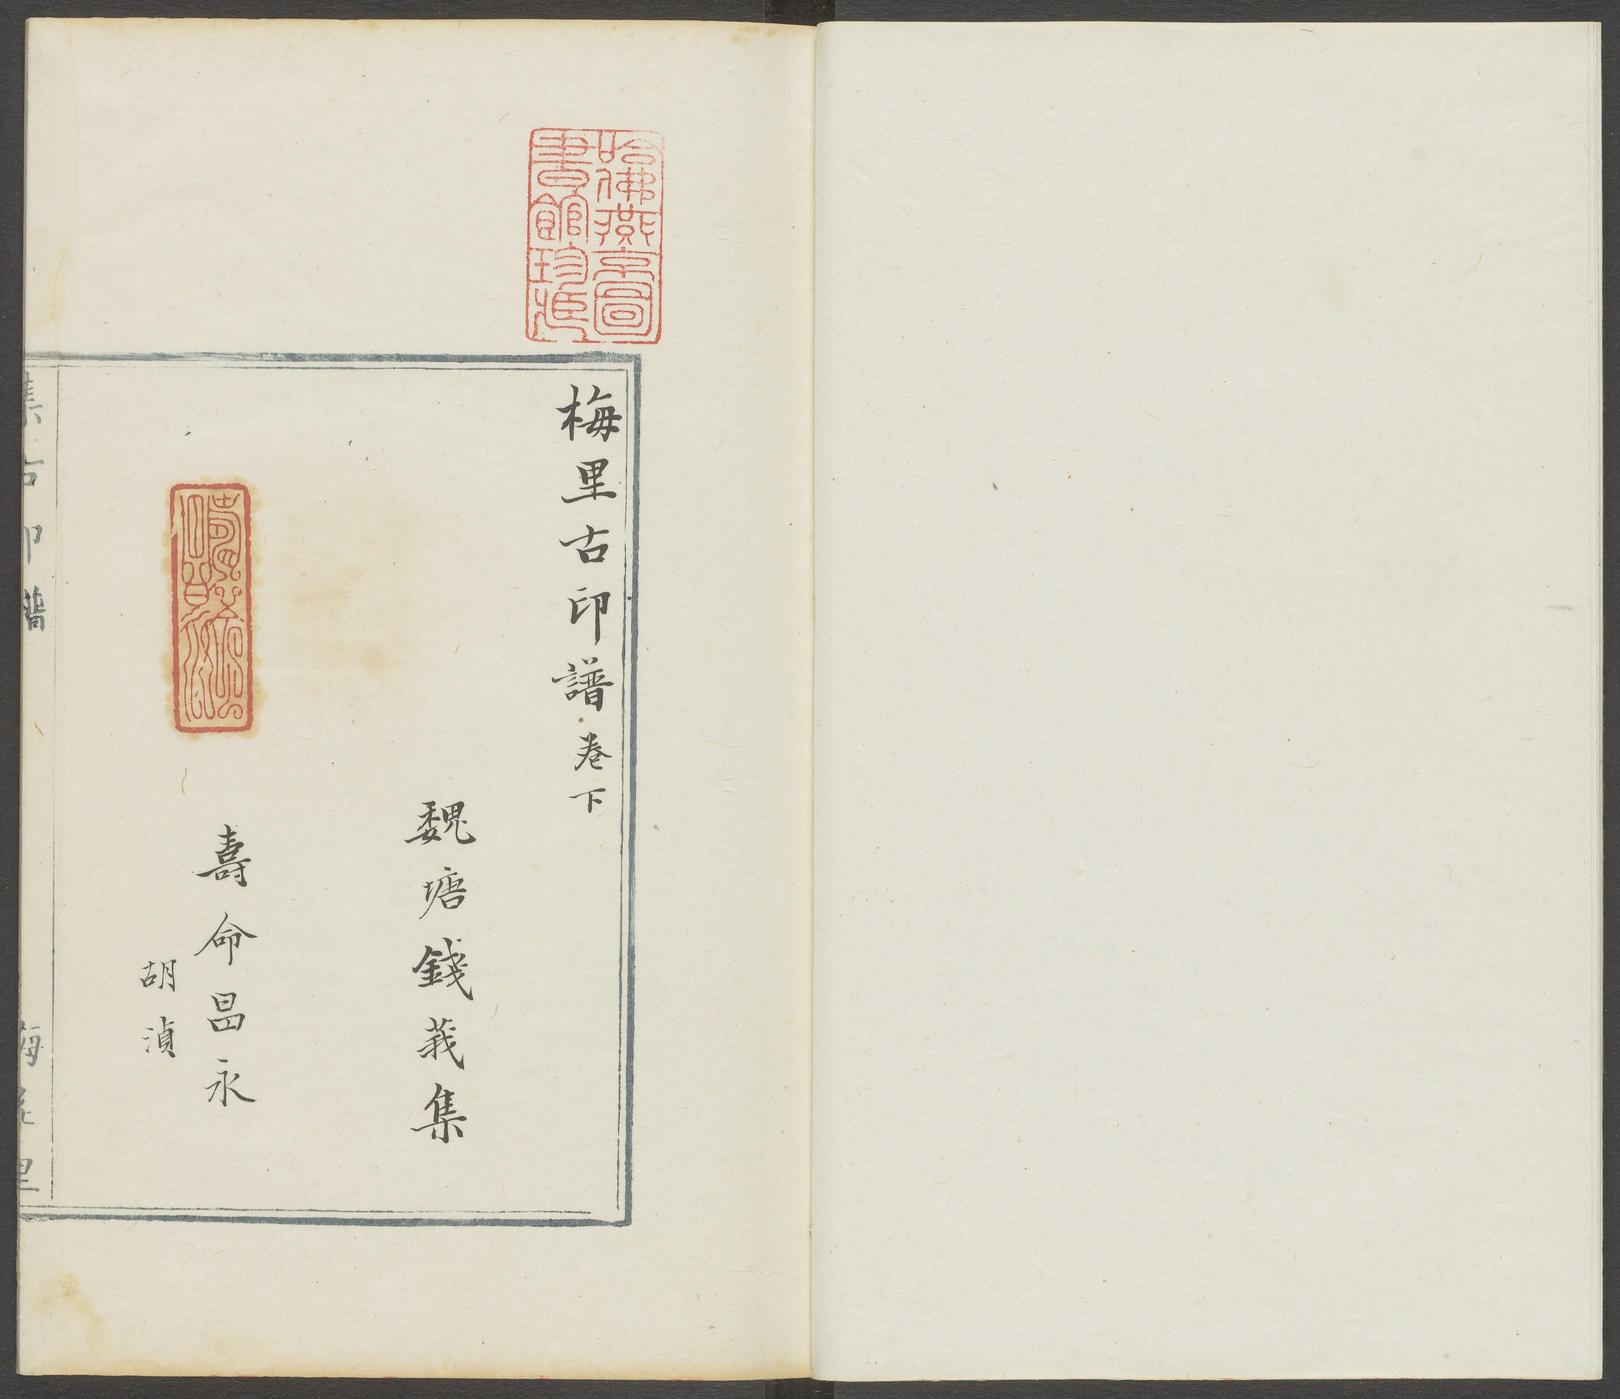 哈佛燕京圖
書館珍藏
梅里古印譜卷下
魏塘錢莪集
壽命昌永
胡湞
集古印譜
梅花里